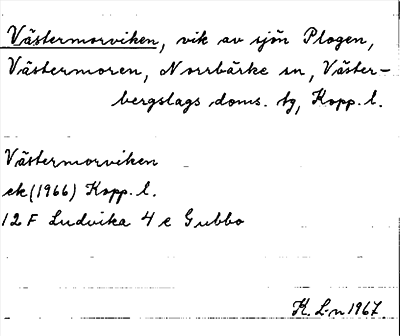 Västermorviken, vik av sjön Plogen,
Västermoren, Norrbärke sn, Väster-
bergslags doms. tg, Kopp. l.
Västermorviken
ek (1966) Kopp. l.
12 F Ludvika 4 e Gubbo
K. L-n 1967